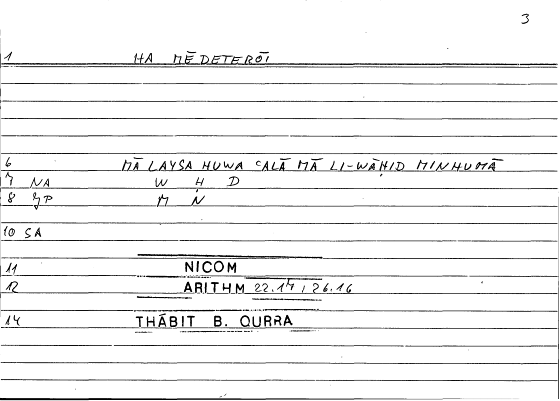 3
1 HA MĒDETERŌI
6 MĀ LAYSA HUWA ʿALĀ MĀ LI-WĀḤID MINHUMĀ
7 NA W Ḥ D
8 M N
10 SA
11 NICOM
12 ARITHM 22.17 / 26.16
14 THĀBIT B. QURRA